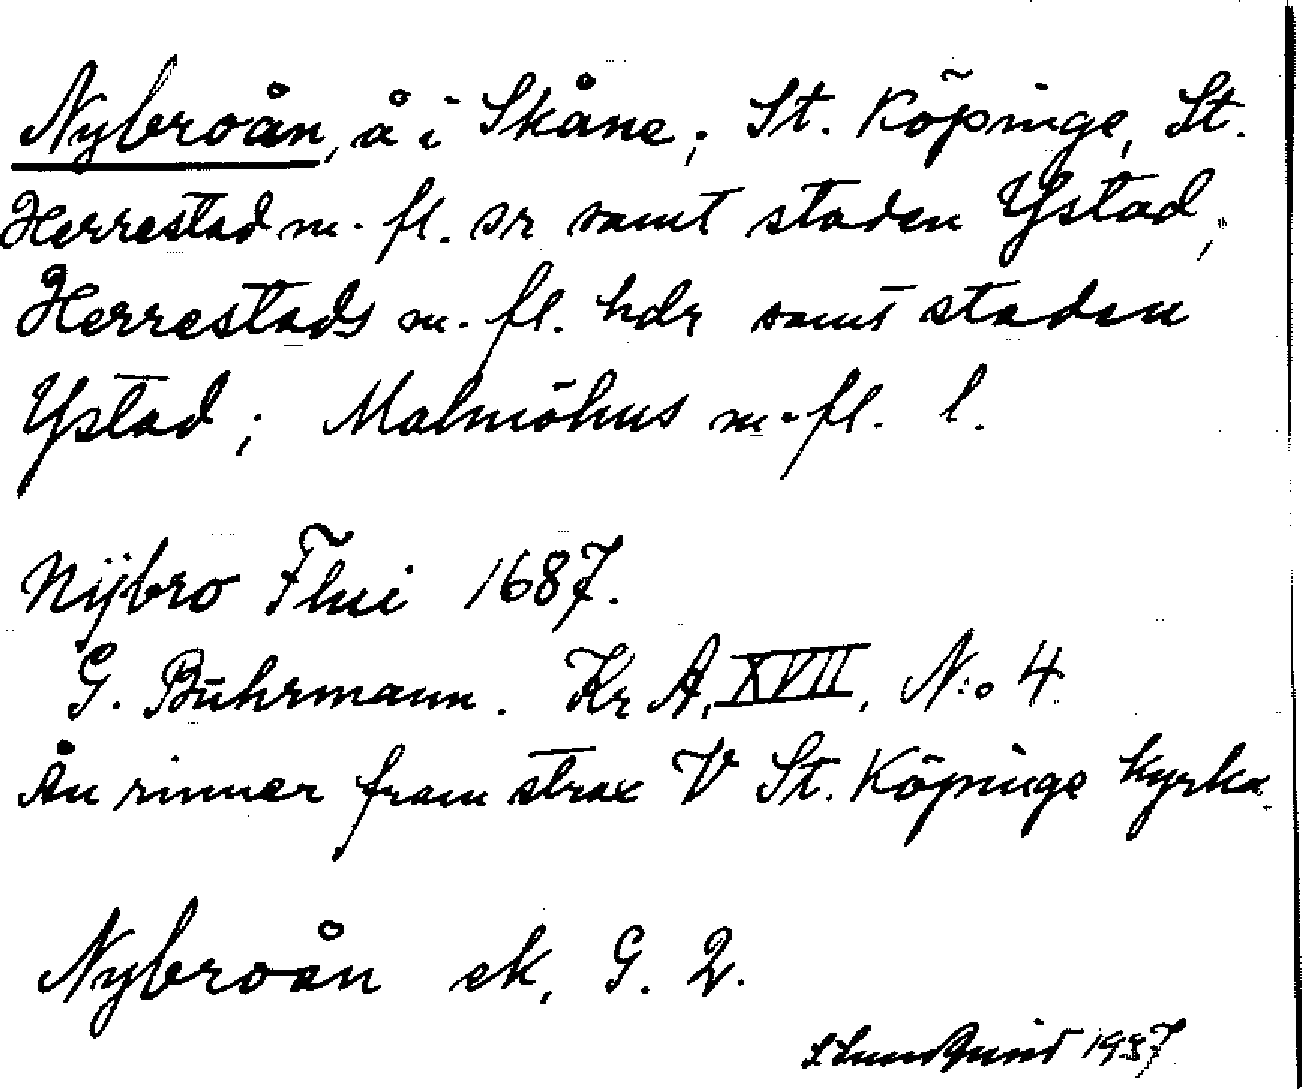 Nybroån, å i Skåne; St. Köpinge, St.
Herrestad m. fl. snr samt staden Ystad;
Herrestads m. fl. hdr samt staden
Ystad; Malmöhus m. fl. l.
Nÿbro Flui 1687.
G. Buhrmann. Kr A, XVII, N:o 4
Ån rinner fram strax V St. Köpinge kyrka.
Nybroån ek, G. 2.
1937